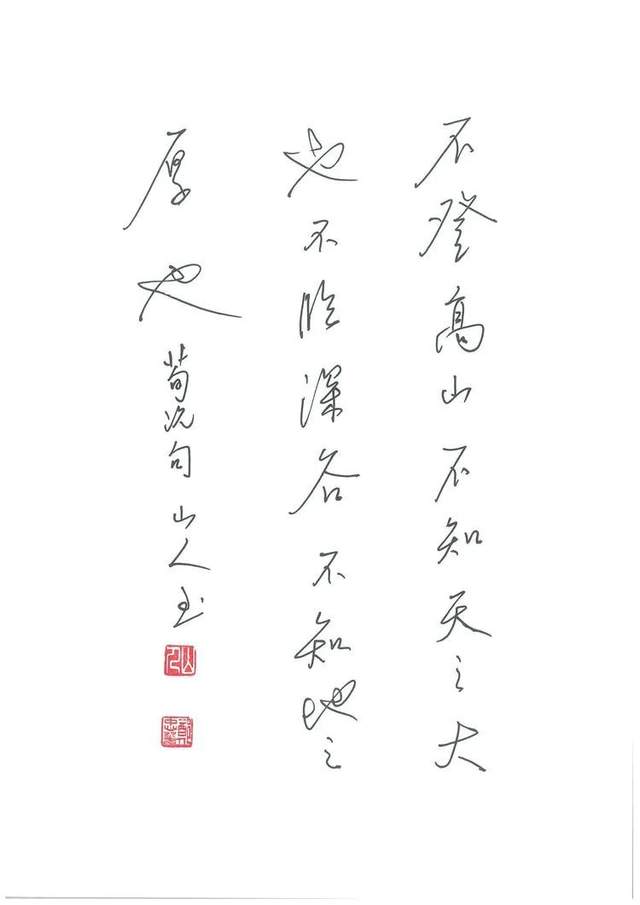 不登高山不知天之大
也不临深谷不知地之
厚也 荀况句 山人书